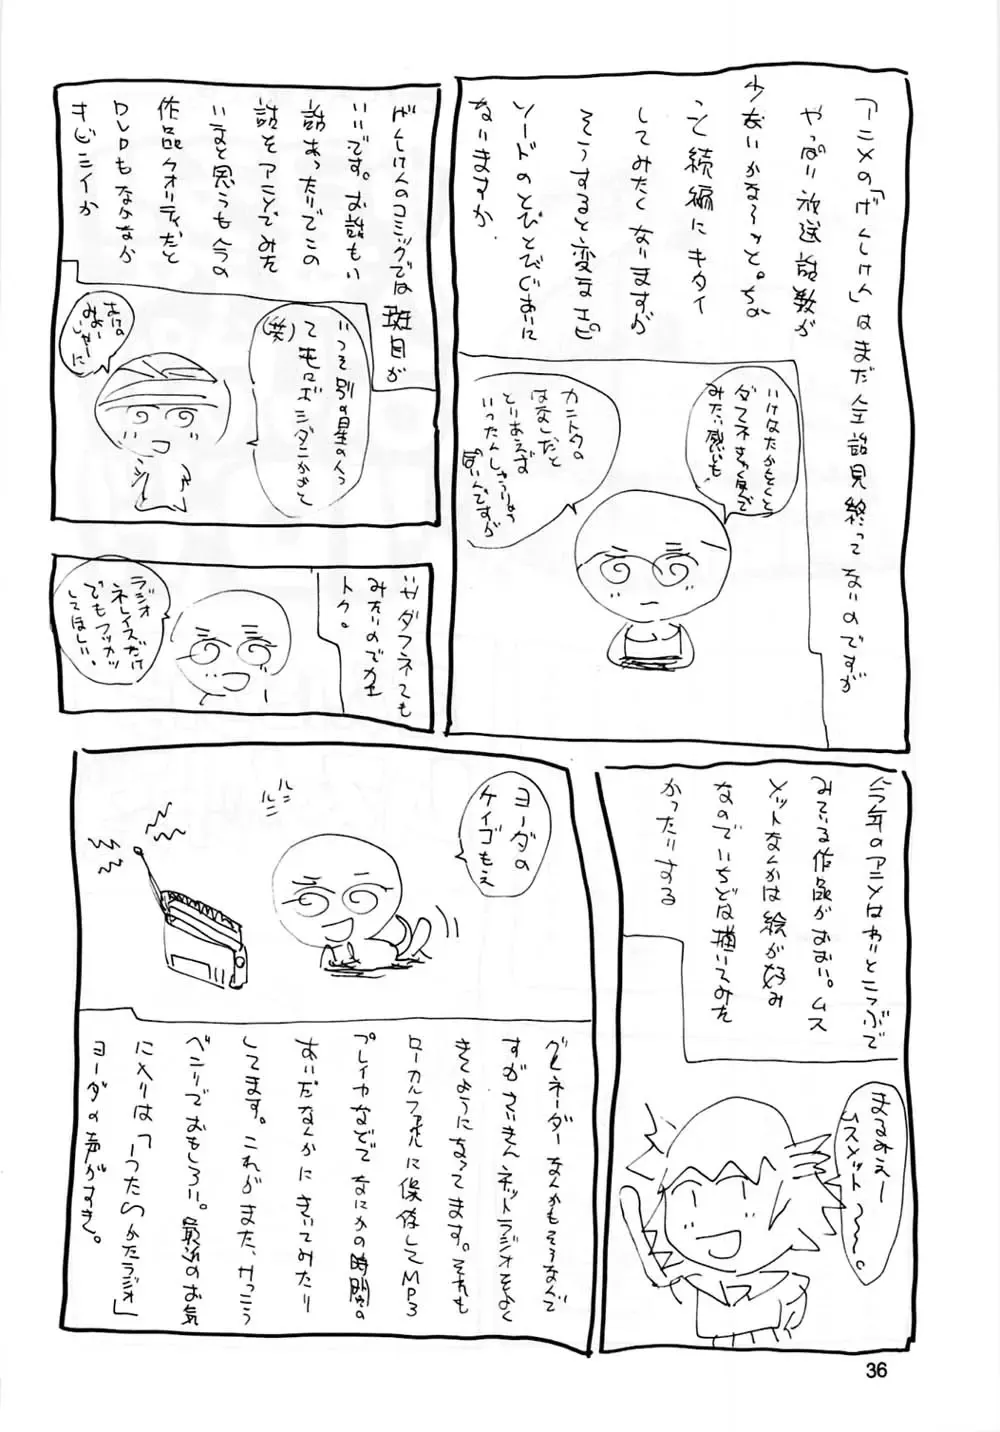 アニメの「げんしけん」はまだ全話見終ってないのですが
やっぱり放送話数が
少ないかな～ッと。ちょ
っと続編にキタイ
してみたくなりますが
そうすると変なエピ
ソードのとびとびぐあいに
ないますか
みたい感じも
カントクの
はなしだと
とりあえず
いったんしゅうりょう
ぽいんですが
げんしけんのコミックでは斑目が
いいです。お話もい
話あったりでこの
話をアニメでみた
いまと思うも今の
作品クオリティだと
DVDもなかなか
キビシイか
いっそ別の星の人っ
(笑)
みたいのでカエ
トク。
ラジオ
ネレイズだけ
でもフッカツ
してほしい。
今年のアニメはわりとこつぶで
みている作品がおおい。ムス
メットなんかは絵が好み
なのでいちどは描いてみた
かったりする
まるみえー
Sスメット～～。
ヨーダの
ケイゴもえ
グレネーダーなんかもそうなんで
すがさいきんネットラジオをよく
きくようになってます。それも
ローカルファイルに保存してMP3
プレイヤなどでなにかの時間の
あいだなんかにきいてみたり
してます。これがまた、けっこう
ベンリでおもしろい。最近のお気
に入りは「うたいかたラジオ」
ヨーダの声がすき。
36